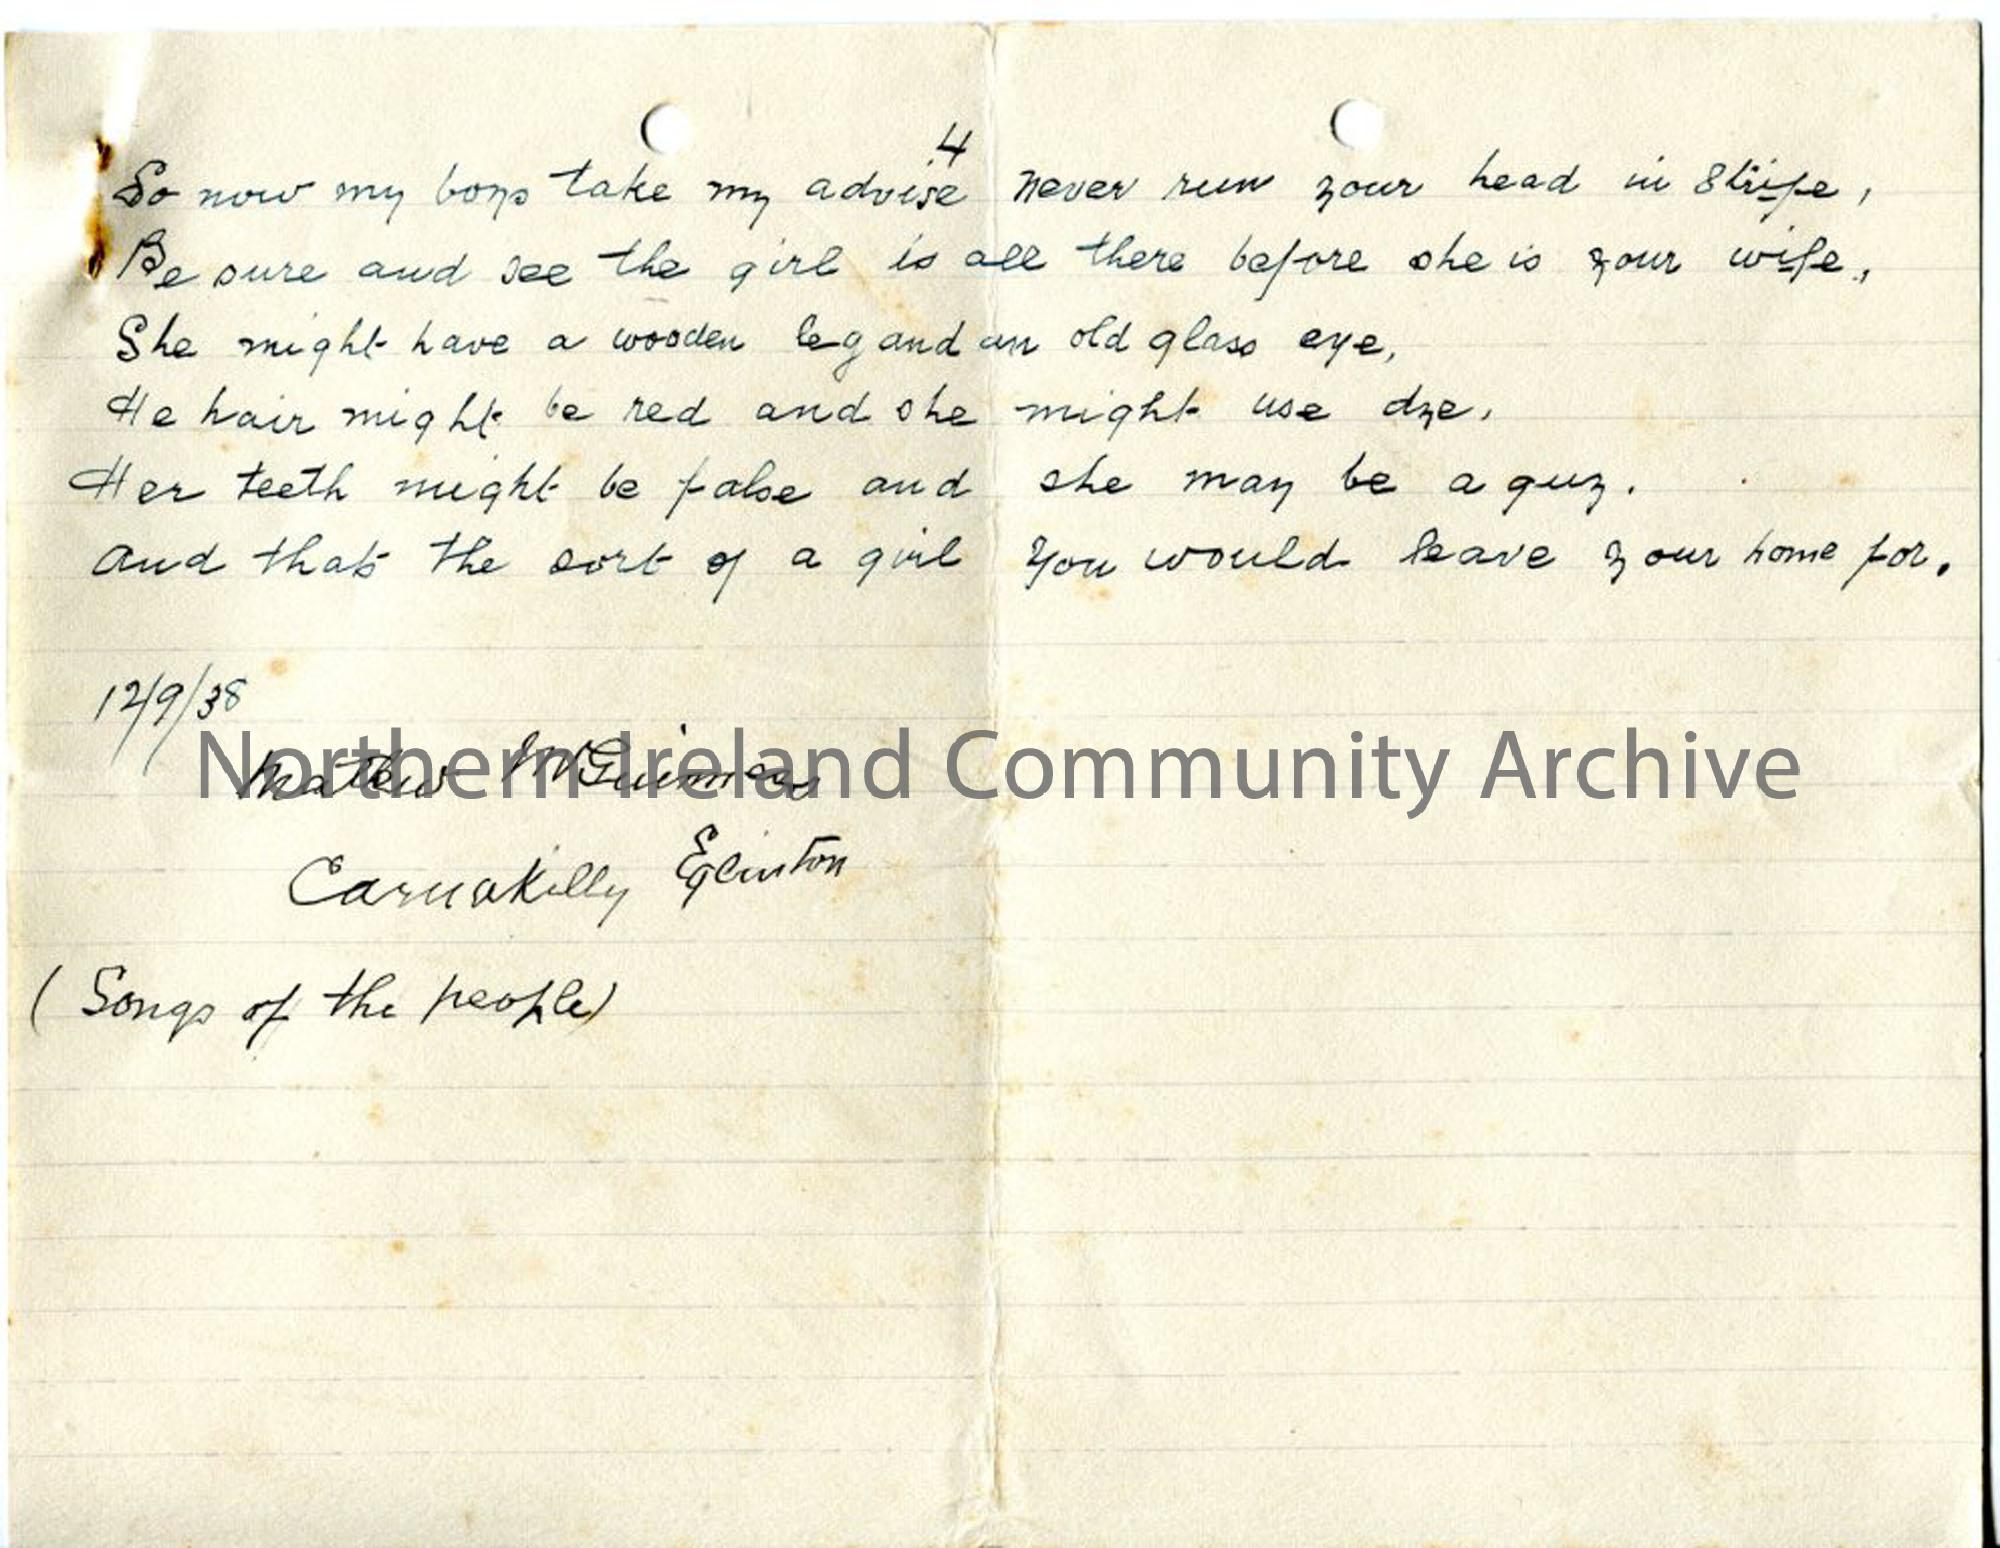 4
So now my boys take my advise never run your head in Strife,
Be sure and see the girl is all there before she is your wife.,
She might have a wooden leg and an old glass eye,
He hair might be red and she might use dye.
Her teeth might be false and she may be a guy.
and thats the sort of a girl you would leave your home for.
12/9/38
Northern Ireland Community Archive
Mathew McGuinness
Carnakilly Eglinton
(Songs of the people)